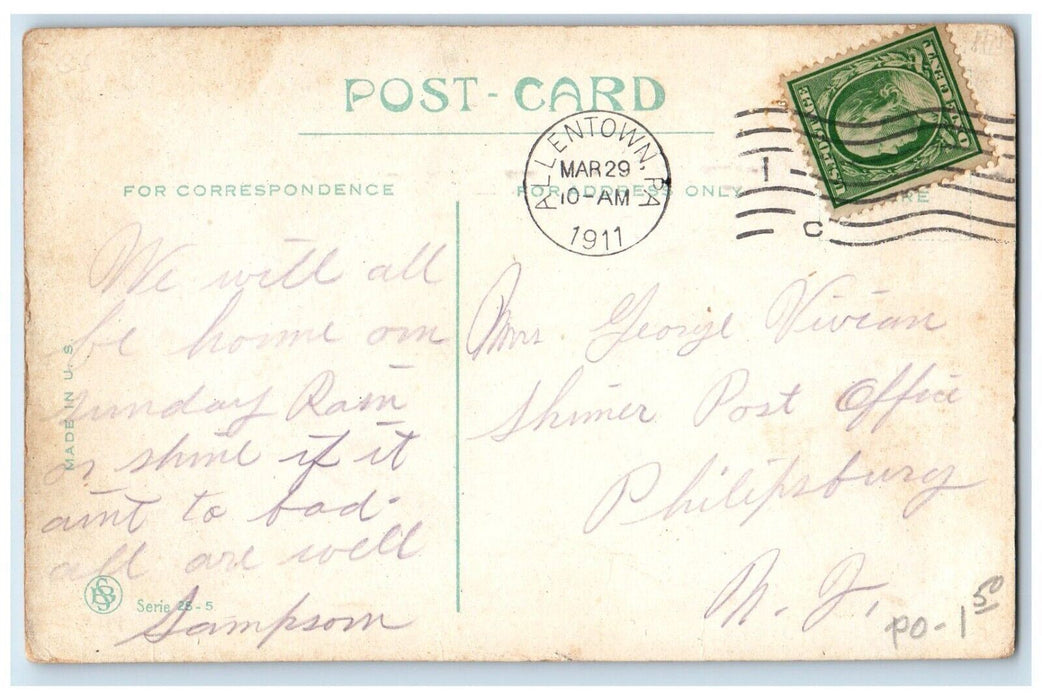 POST-CARD
FOR CORRESPONDENCE
FOR ADDRESS ONLY
ALLENTOWN, PA
MAR 29
10-AM
1911
1
C
U.S. POSTAGE
We will all
be home on
sunday Rain
or shine if it
aint to bad-
all are well
Sampson
Mrs. George Vivian
Shimer Post Office
Philipsburg
N. J.
MADE IN U. S.
Serie 25-5
PO-1 50